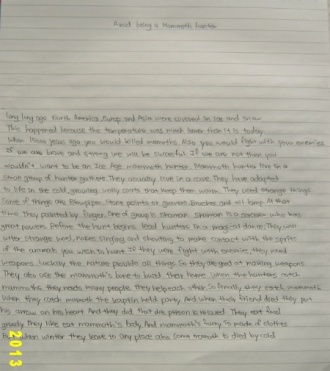 Food being a Mammoth hunter
Long long ago North America, Europ and Asia were covered in ice and snow
This happened because the temperature was much lower than it is today.
When 10000 years ago you would killed mammoths. Also you would fight with your enemies
If we are brave and strong we will be succesful. If we are not then you
wouldn't want to be an Ice Age mammoth hunter. Mammoth hunters live in a
small group of hunter gathers. They usually live in a cave. They have adapted
to life in the cold, growing wolly coats that keep them warm. They used strange things
Some of things are Blowpipe, stone points or general Brushes and oil lamp. At that
time They painted by fingers. One of group is Shaman. Shaman is a sorcerer who has
great powers. Before the hunt begins lead hunters in a magical dance. They wear
utter strange words, noises singing and shouting to make contact with the spirit
of the animals you wish to hunt. If they were fight with enemies, they need
weapons. Luckily the nature provide all things. So they are good at making weapons.
They also use the mammoth's bone to build their home. When the hunters catch
mammoths they needs many people. They help each other. So finally they catch mammoth
When they catch mammoth the captain held party. And when their friend died they put
his arrow on his heart. And they did that the person is relaxed. They eat food
greedy. They like eat mammoth's body. And mammoth's furry is made of clothes
But when winter they leave to any place also some mammoth is died by cold
2013